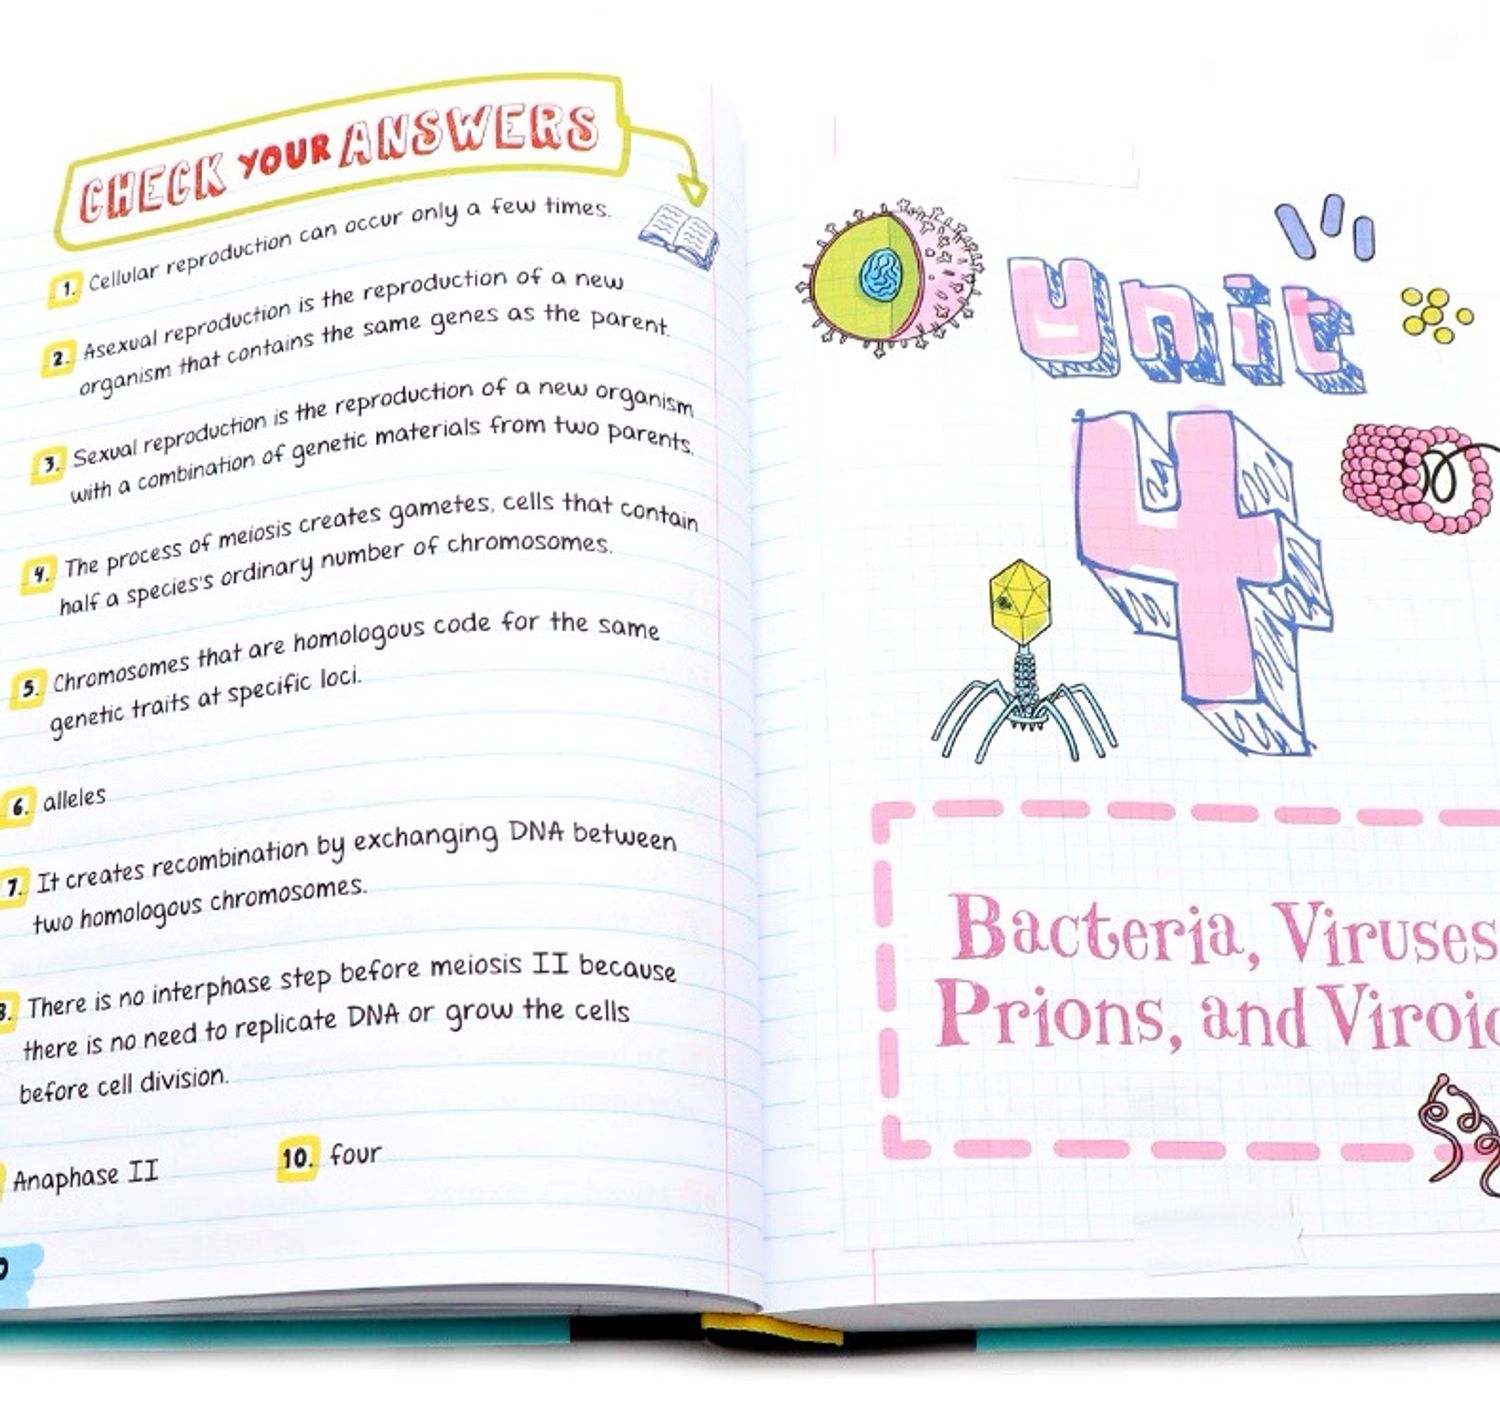 CHECK YOUR ANSWERS
1. Cellular reproduction can occur only a few times.
2. Asexual reproduction is the reproduction of a new
organism that contains the same genes as the parent.
3. Sexual reproduction is the reproduction of a new organism
with a combination of genetic materials from two parents.
4. The process of meiosis creates gametes, cells that contain
half a species's ordinary number of chromosomes.
5. Chromosomes that are homologous code for the same
genetic traits at specific loci.
6. alleles
7. It creates recombination by exchanging DNA between
two homologous chromosomes.
8. There is no interphase step before meiosis II because
there is no need to replicate DNA or grow the cells
before cell division.
Anaphase II
10. four
Unit
4
Bacteria, Viruses
Prions, and Viroi